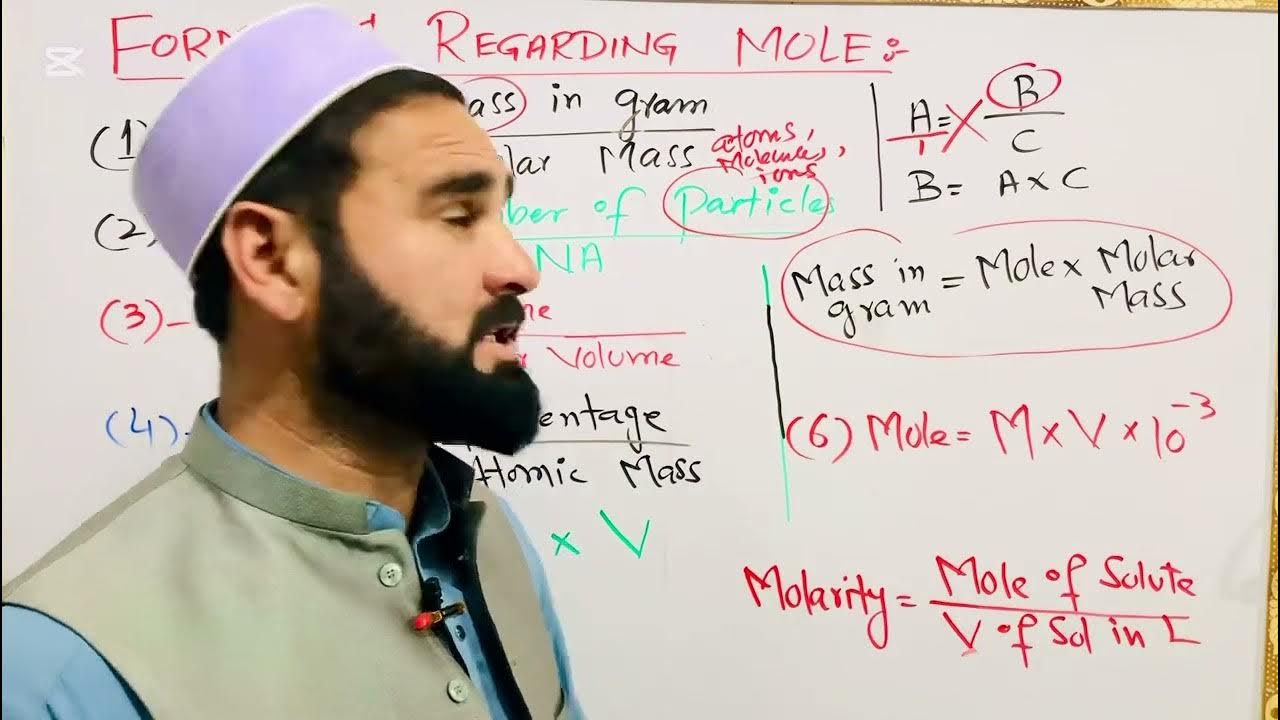 FORM REGARDING MOLE:-
(1) ass in gram
lar Mass
atoms,
Molecules,
ions
(2) ber of Particles
NA
(3)- me
r Volume
(4)- entage
Atomic Mass
x V
A = B
1 C
B = A x C
Mass in gram = Mole x Molar Mass
(6) Mole = M x V x 10⁻³
Molarity = Mole of Solute
V of Sol in L